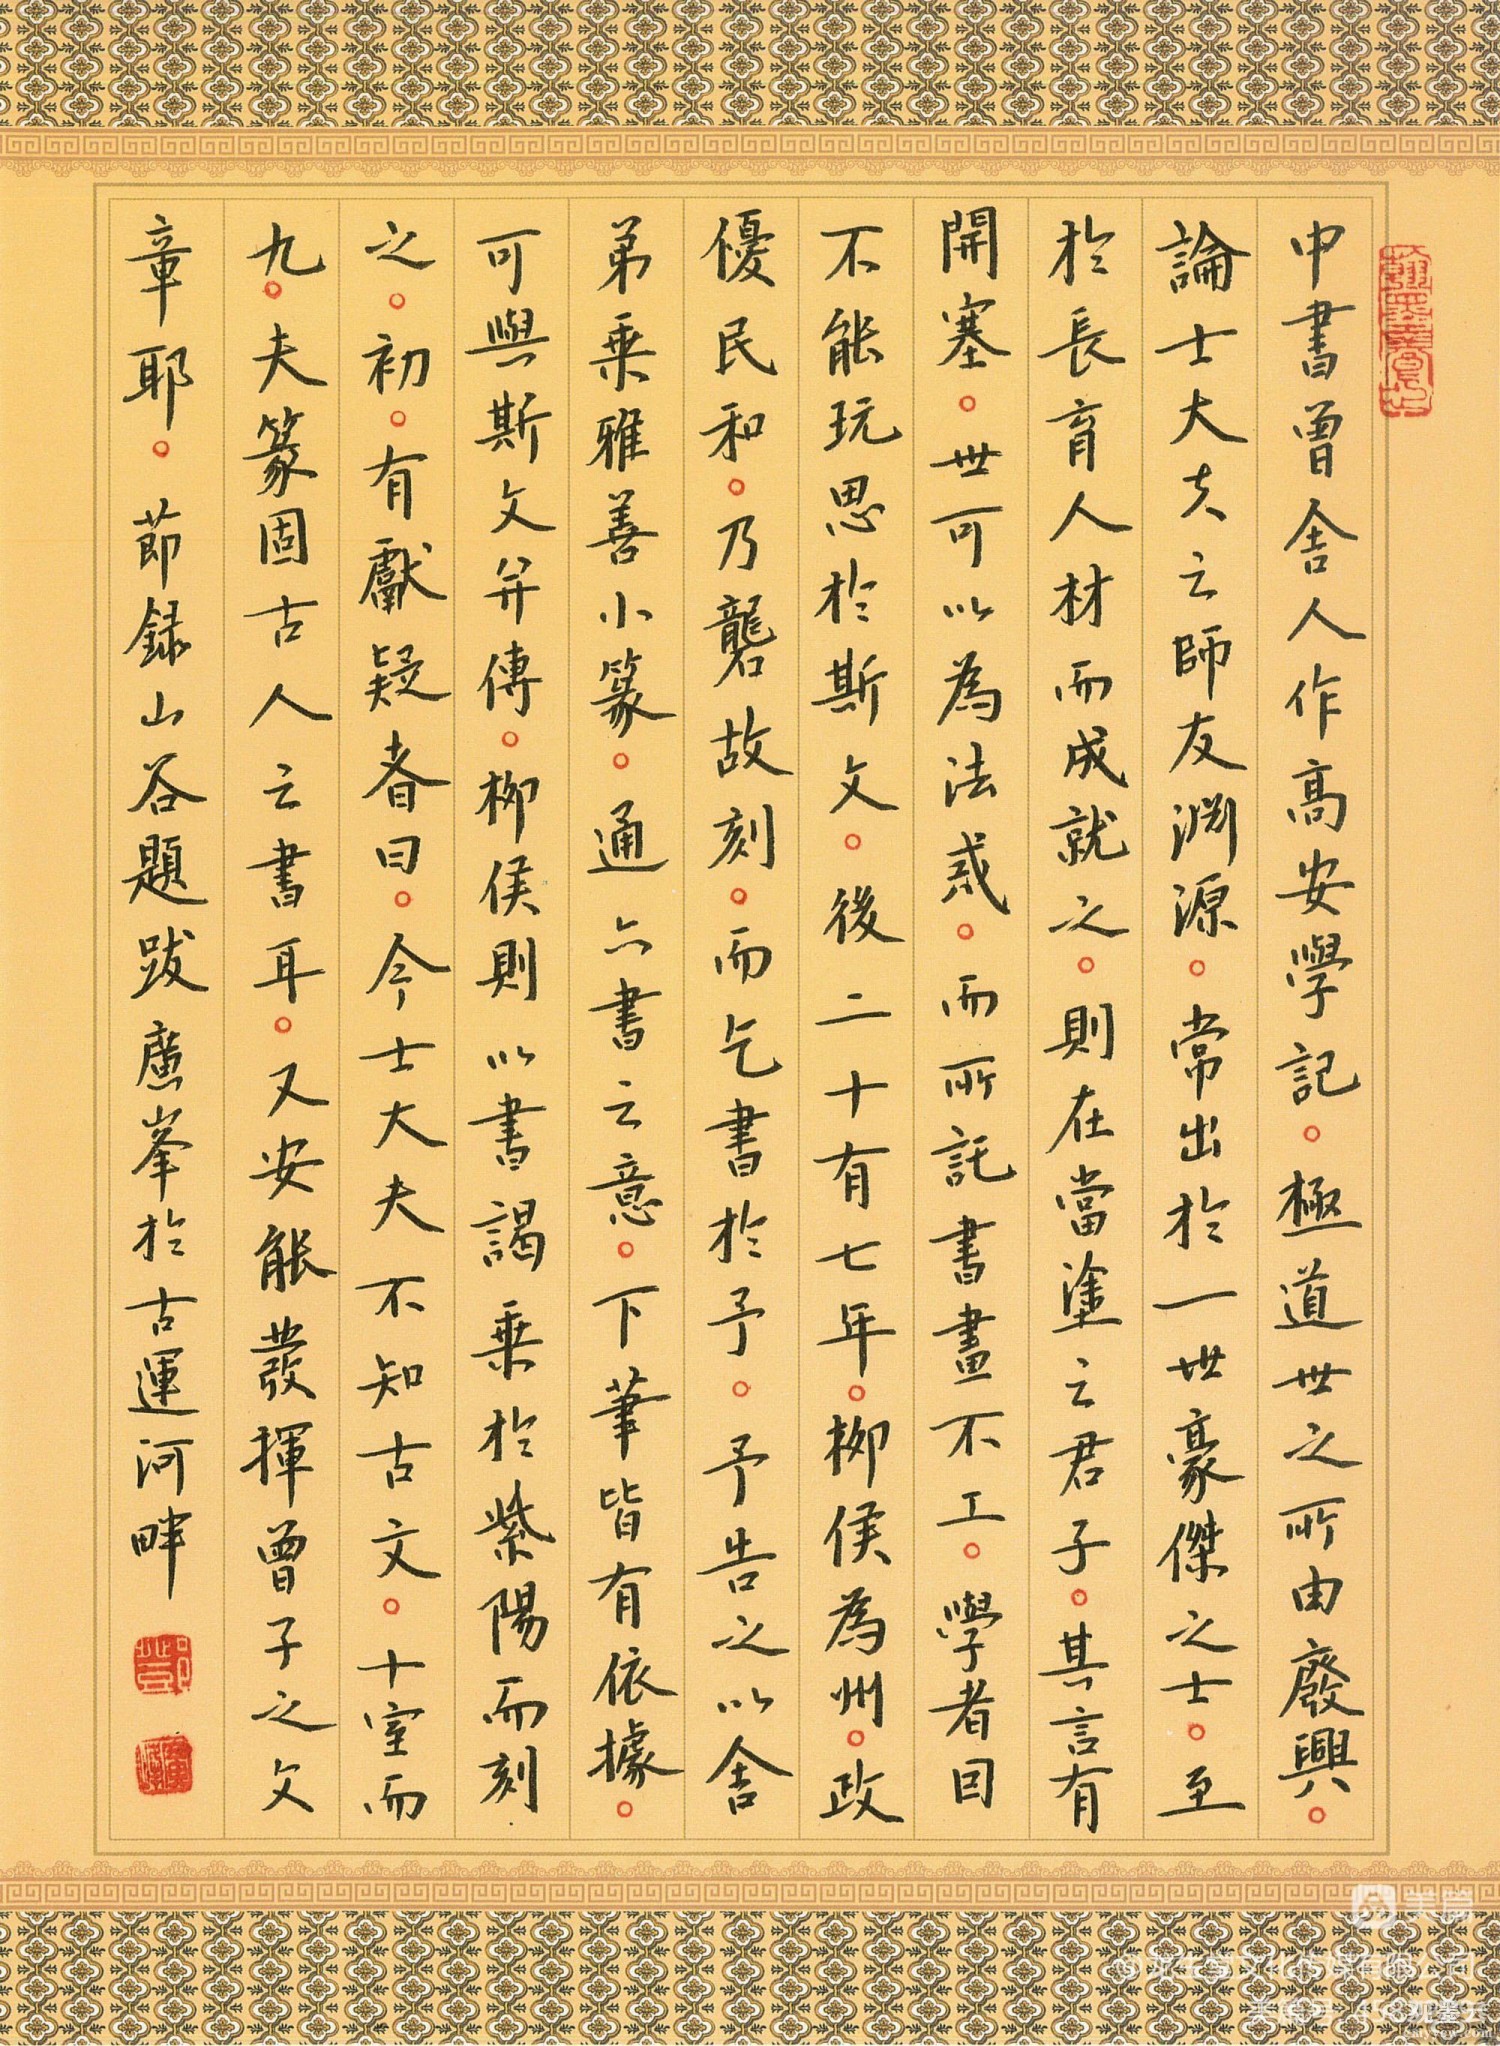 中書曾舍人作高安學記。極道世之所由廢興。
論士大夫之師友淵源。常出於一世豪傑之士。至
於長育人材而成就之。則在當塗之君子。其言有
開塞。世可以為法戒。而所託書畫不工。學者因
不能玩思於斯文。後二十有七年。柳侯為州。政
優民和。乃礱故刻。而乞書於予。予告之以舍
弟乘雅善小篆。通六書之意。下筆皆有依據。
可與斯文并傳。柳侯則以書謁乘於紫陽而刻
之。初。有獻疑者曰。今士大夫不知古文。十室而
九。夫篆固古人之書耳。又安能發揮曾子之文
章耶。節錄山谷題跋廣峯於古運河畔
美篇